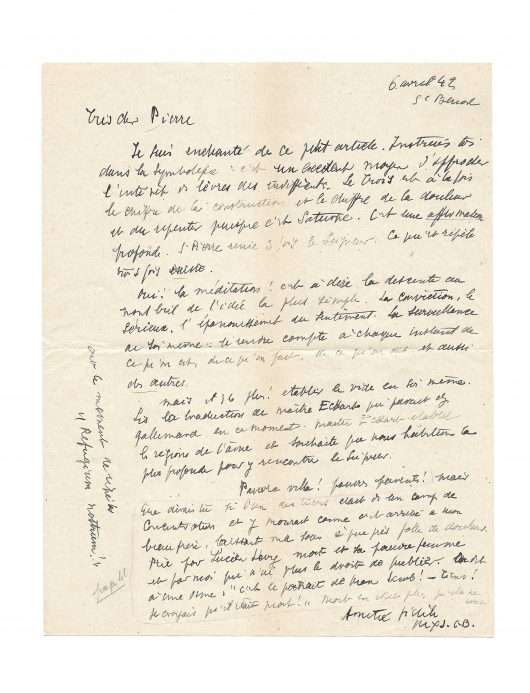 6 avril 42
St Benoit
Très cher Pierre
Je suis enchanté de ce petit article. Instruis toi
dans la symbolique : c'est un excellent moyen d'approcher
l'intérêt des élèves des indifférents. Le trois est à la fois
le chiffre de la construction et le chiffre de la douleur
et du repentir puisque c'est Saturne. C'est une affirmation
profonde. St Pierre renie 3 fois le Seigneur. Ce qui est répété
trois fois existe.
Oui ! la méditation ! c'est à dire la descente au
nombril de l'idée la plus simple. La conviction, le
sérieux, l'épanouissement du sentiment. La surveillance
de soi-même : se rendre compte à chaque instant de
ce qu'on est, de ce qu'on fait, de ce qu'on dit et aussi
des autres.
mais il y a plus ! établir le vide en soi même.
Lis la traduction de maître Eckart qui paraît
gallimard en ce moment. maître Eckart établit
les régions de l'âme et souhaite que nous habitions la
plus profonde pour y rencontrer le Seigneur.
Pauvre villa ! pauvres parents ! mais
que dirais-tu si l'un des tiens était dans un camp de
concentration et y mourait comme c'est arrivé à mon
beau frère, laissant ma soeur à peu près folle de douleur.
Prie pour Lucien Lévy mort et sa pauvre femme
et pour moi qui n'ai plus le droit de publier. On dit
à une dame : "c'est le portrait de Max Jacob ! – Tiens !
Je croyais qu'il était mort !"
Amitié fidèle
Max J.
pour le moment de répéter
"Refugium nostrum !"